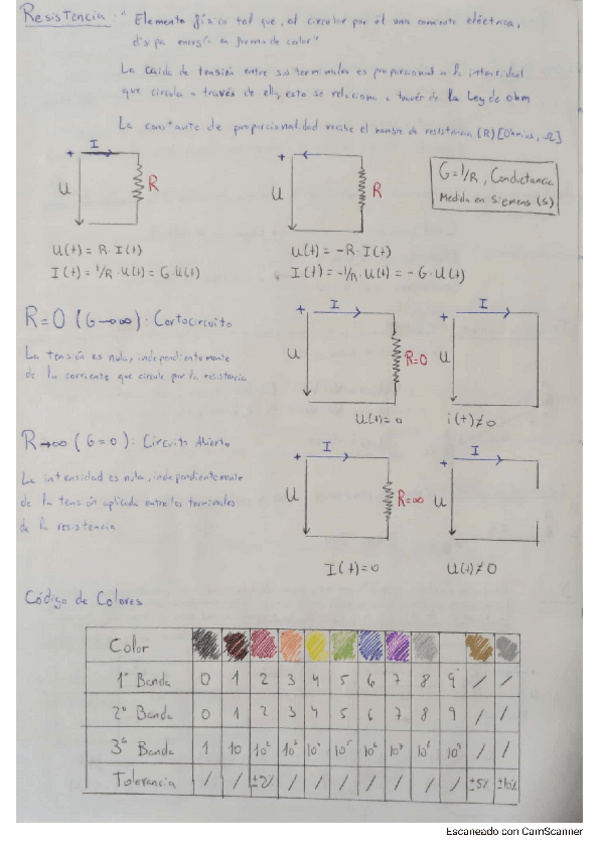 Resistencia: "Elemento físico tal que, al circular por él una corriente eléctrica,
disipa energía en forma de calor"
La caída de tensión entre sus terminales es proporcional a la intensidad
que circula a través de ella, esto se relaciona a través de la Ley de Ohm
La constante de proporcionalidad recibe el nombre de resistencia (R) [Ohmios, Ω]
I
+
U
R
+
U
R
G=1/R, Conductancia
Medida en Siemens (S)
U(t) = R · I(t)
I(t) = 1/R · U(t) = G · U(t)
U(t) = -R · I(t)
I(t) = -1/R · U(t) = -G · U(t)
R=0 (G→∞): Cortocircuito
La tensión es nula, independientemente
de la corriente que circule por la resistencia
+ I
U
R=0
U(t)=0
+ I
U
i(t)≠0
R→∞ (G=0): Circuito Abierto
La intensidad es nula, independientemente
de la tensión aplicada entre los terminales
de la resistencia
+ I
U
R=∞
I(t)=0
+ I
U
U(t)≠0
Código de Colores
Color
1ª Banda 0 1 2 3 4 5 6 7 8 9 / /
2ª Banda 0 1 2 3 4 5 6 7 8 9 / /
3ª Banda 1 10 10² 10³ 10⁴ 10⁵ 10⁶ 10⁷ 10⁸ 10⁹ / /
Tolerancia / / ±2% / / / / / / / ±5% ±10%
Escaneado con CamScanner